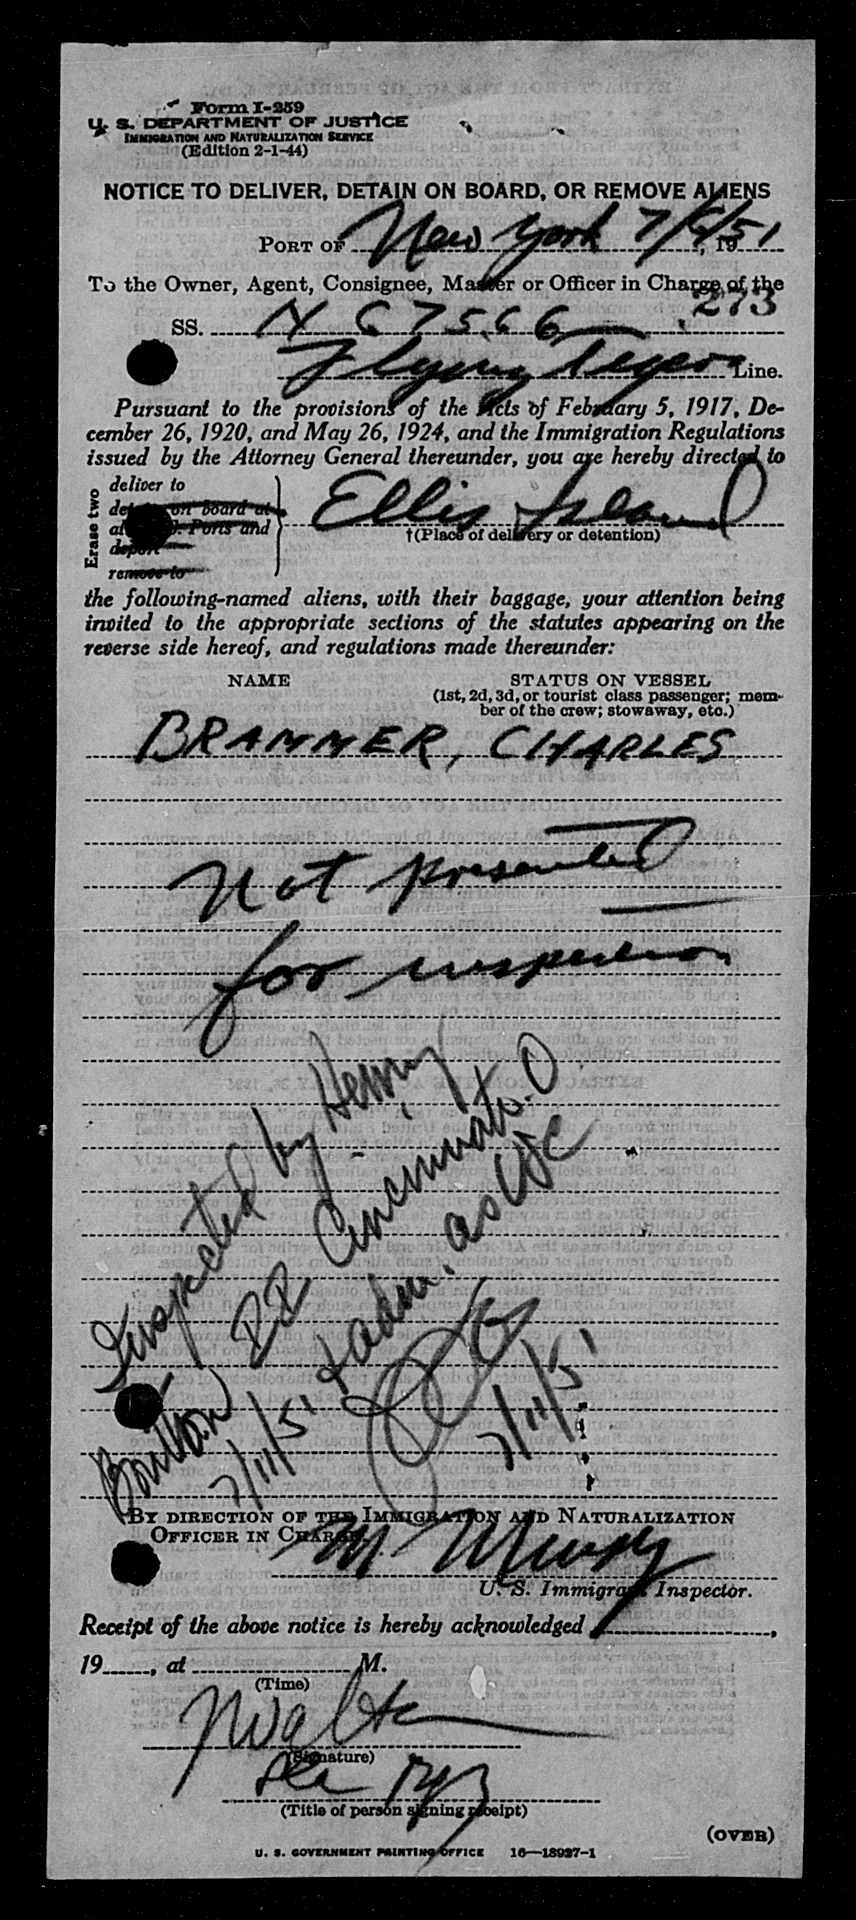 Form I-259
U. S. DEPARTMENT OF JUSTICE
IMMIGRATION AND NATURALIZATION SERVICE
(Edition 2-1-44)
NOTICE TO DELIVER, DETAIN ON BOARD, OR REMOVE ALIENS
PORT OF New York 7/ /51, 19
To the Owner, Agent, Consignee, Master or Officer in Charge of the
273
SS. N 67566
Flying Tigers Line.
Pursuant to the provisions of the Acts of February 5, 1917, De-
cember 26, 1920, and May 26, 1924, and the Immigration Regulations
issued by the Attorney General thereunder, you are hereby directed to
Erase two
deliver to
detain on board at
al U. S. Ports and
deport
remove to
Ellis Island
†(Place of delivery or detention)
the following-named aliens, with their baggage, your attention being
invited to the appropriate sections of the statutes appearing on the
reverse side hereof, and regulations made thereunder:
NAME STATUS ON VESSEL
(1st, 2d, 3d, or tourist class passenger; mem-
ber of the crew; stowaway, etc.)
BRAMMER, CHARLES
Not presented
for inspection
Inspected by Henry
Cincinnati. O
7/11/51 & adm. as USC
7/11/51
BY DIRECTION OF THE IMMIGRATION AND NATURALIZATION
OFFICER IN CHARGE.
M
U. S. Immigrant Inspector.
Receipt of the above notice is hereby acknowledged ,
19 , at M.
(Time)
(Signature)
(Title of person signing receipt)
(OVER)
U. S. GOVERNMENT PRINTING OFFICE 16—18927-1